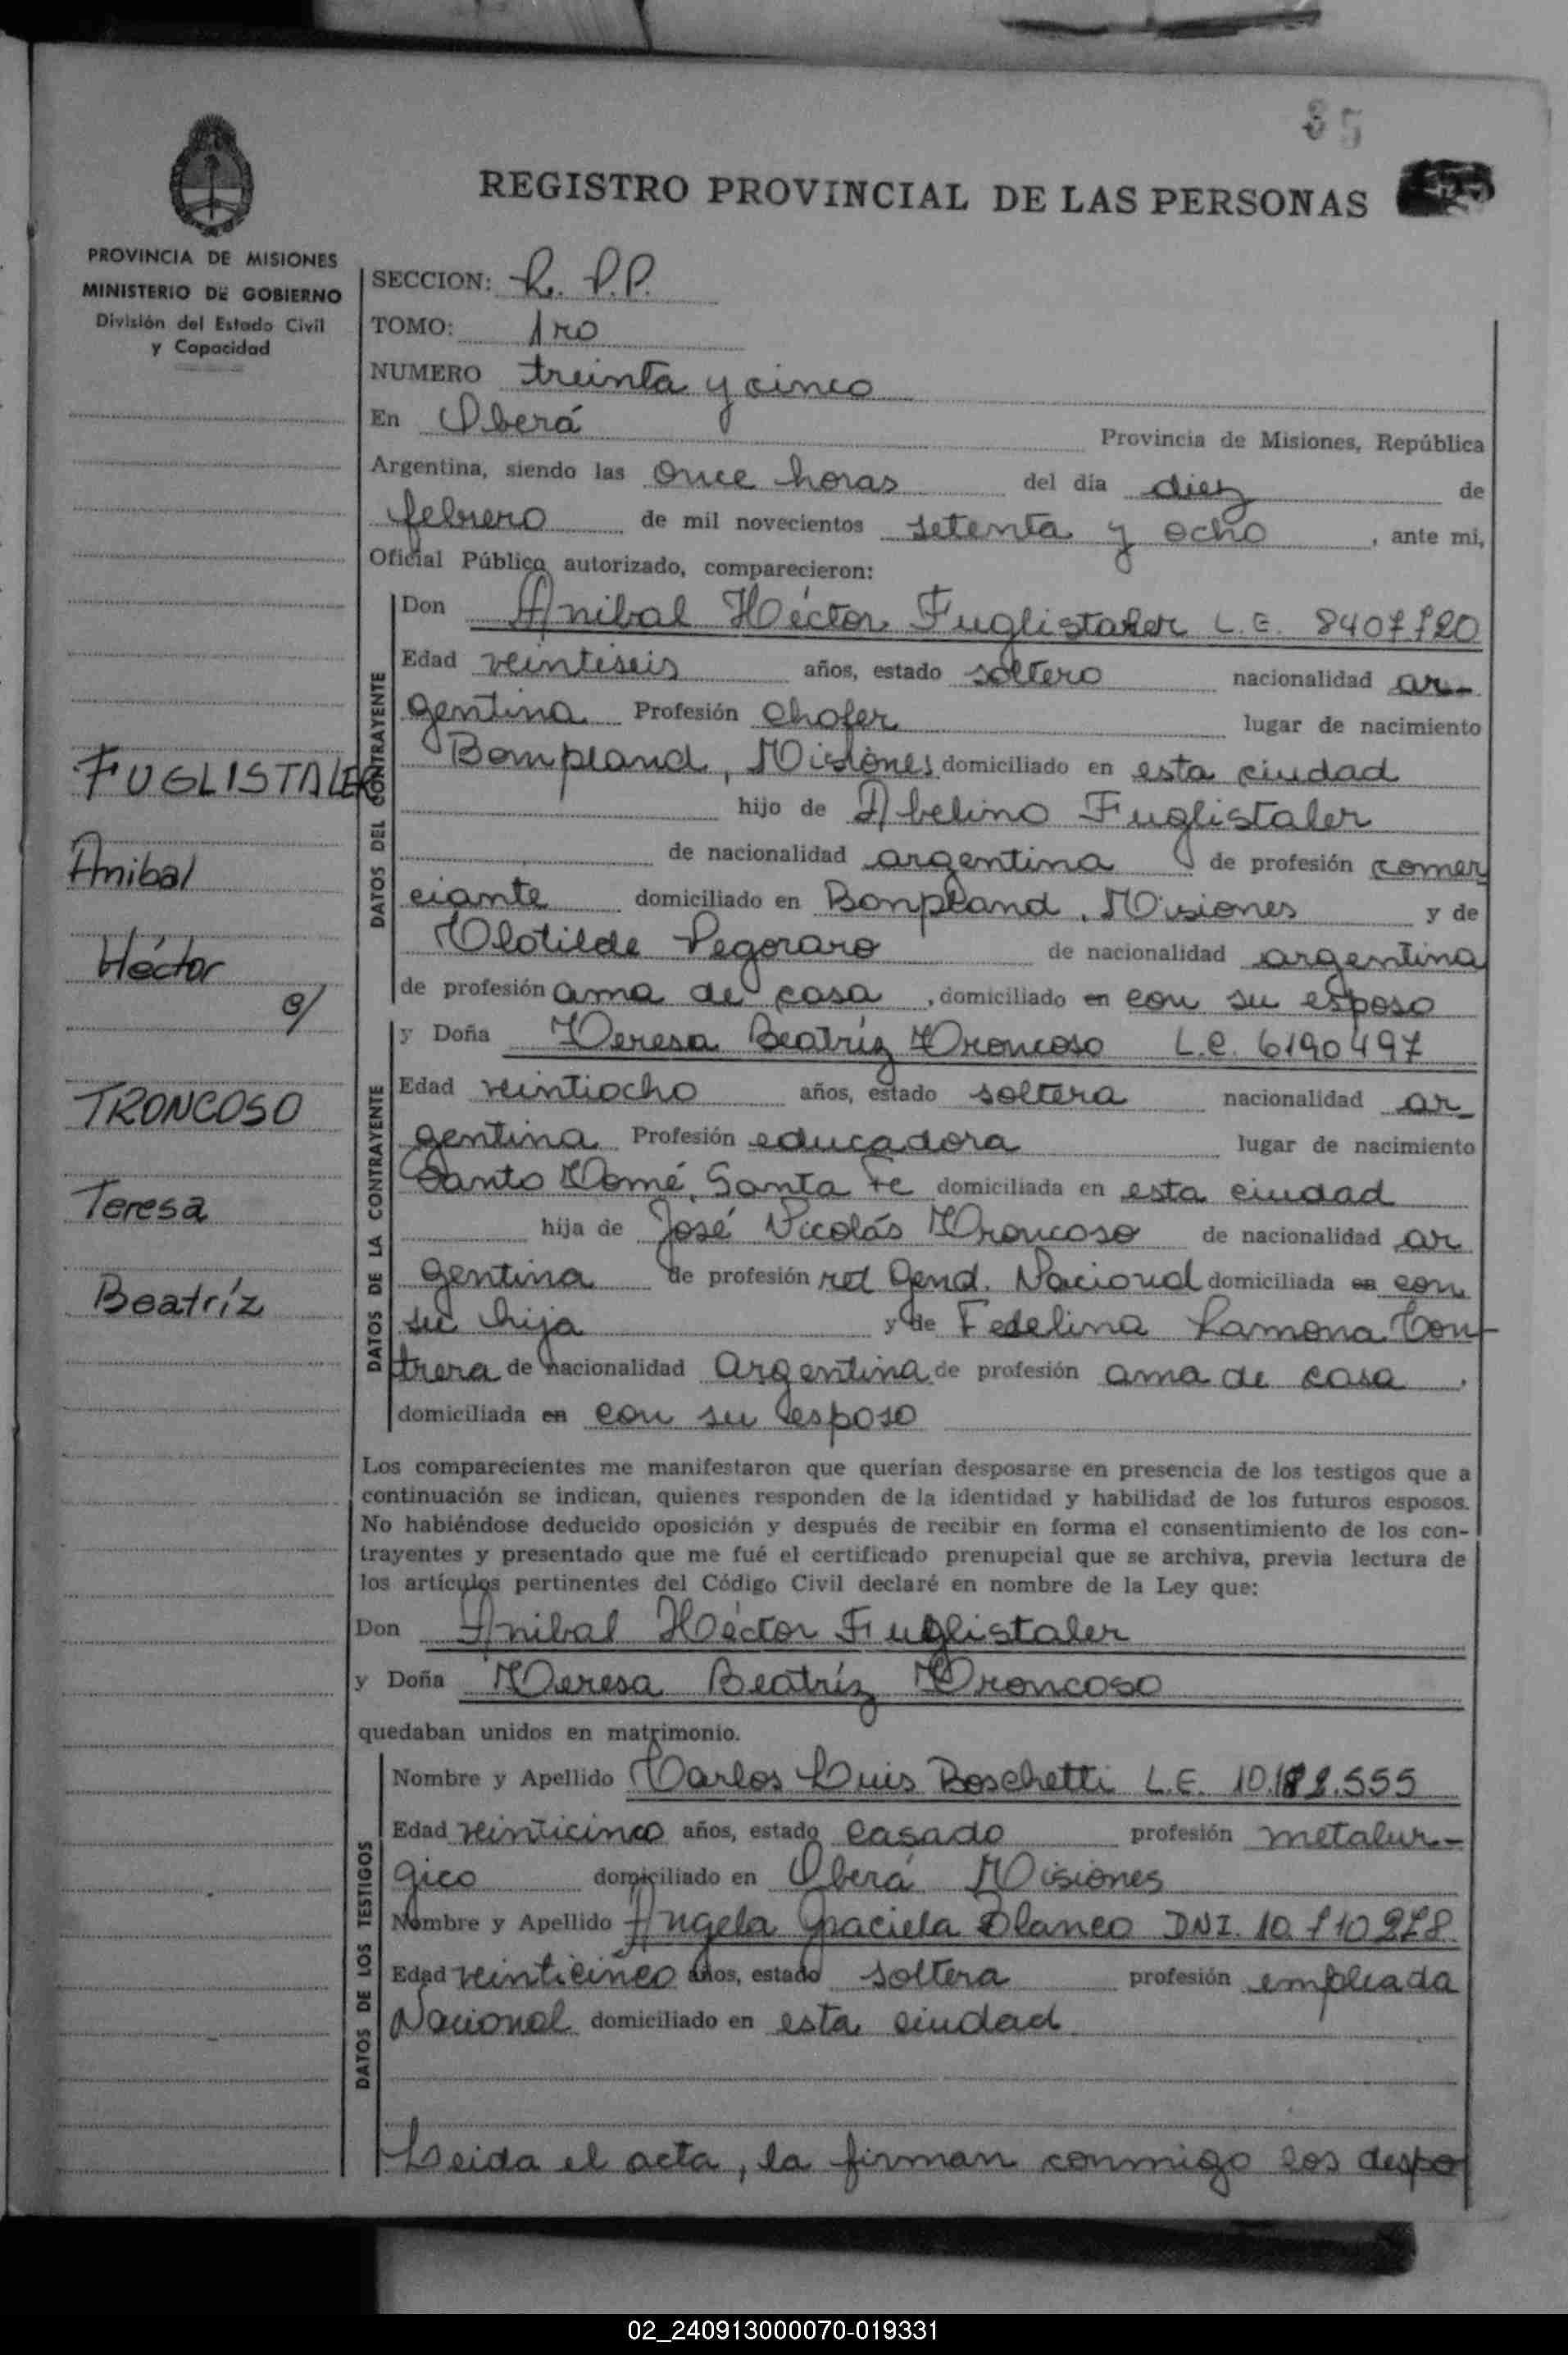 35
REGISTRO PROVINCIAL DE LAS PERSONAS
PROVINCIA DE MISIONES
MINISTERIO DE GOBIERNO
División del Estado Civil
y Capacidad
SECCION: R. P.P.
TOMO: 1ro
NUMERO treinta y cinco
En Oberá Provincia de Misiones, República
Argentina, siendo las once horas del día diez de
febrero de mil novecientos setenta y ocho, ante mi,
Oficial Público autorizado, comparecieron:
DATOS DEL CONTRAYENTE
Don Anibal Héctor Fuglistaler L.E. 8407720
Edad veintiseis años, estado soltero nacionalidad ar-
gentina Profesión chofer lugar de nacimiento
Bompland, Misiones domiciliado en esta ciudad
hijo de Abelino Fuglistaler
de nacionalidad argentina de profesión comer
ciante domiciliado en Bonpland, Misiones y de
Clotilde Pegoraro de nacionalidad argentina
de profesión ama de casa, domiciliado en con su esposo
FUGLISTALER
Anibal
Héctor
c/
TRONCOSO
Teresa
Beatríz
DATOS DE LA CONTRAYENTE
y Doña Teresa Beatríz Troncoso L.C. 6190497
Edad veintiocho años, estado soltera nacionalidad ar-
gentina Profesión educadora lugar de nacimiento
Santo Tomé, Santa Fe domiciliada en esta ciudad
hija de José Nicolás Troncoso de nacionalidad ar
gentina de profesión ret Gend. Nacional domiciliada en con
su hija y de Fedelina Ramona Con-
trera de nacionalidad argentina de profesión ama de casa,
domiciliada en con su esposo
Los comparecientes me manifestaron que querían desposarse en presencia de los testigos que a
continuación se indican, quienes responden de la identidad y habilidad de los futuros esposos.
No habiéndose deducido oposición y después de recibir en forma el consentimiento de los con-
trayentes y presentado que me fué el certificado prenupcial que se archiva, previa lectura de
los artículos pertinentes del Código Civil declaré en nombre de la Ley que:
Don Anibal Héctor Fuglistaler
y Doña Teresa Beatríz Troncoso
quedaban unidos en matrimonio.
DATOS DE LOS TESTIGOS
Nombre y Apellido Carlos Luis Boschetti L.E.
Edad veinticinco años, estado casado profesión metalur-
gico domiciliado en Oberá Misiones
Nombre y Apellido Angela Graciela Blanco DNI.
Edad veinticinco años, estado soltera profesión empleada
Nacional domiciliado en esta ciudad
Leida el acta, la firman conmigo los despo
02_240913000070-019331